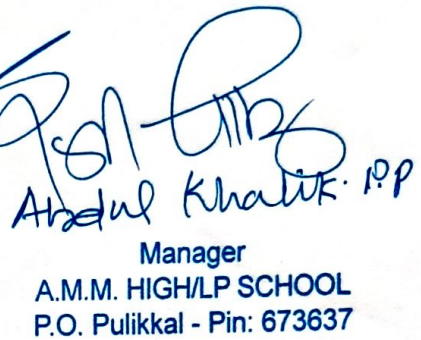 Abdul Khalik. P.P
Manager
A.M.M. HIGH/LP SCHOOL
P.O. Pulikkal - Pin: 673637